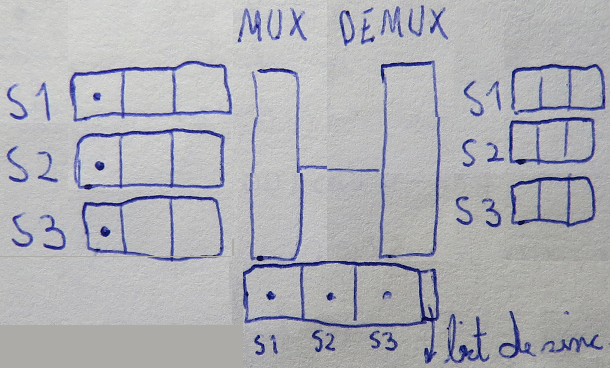 MUX DEMUX
S1 S1
S2 S2
S3 S3
S1 S2 S3 bit de sinc